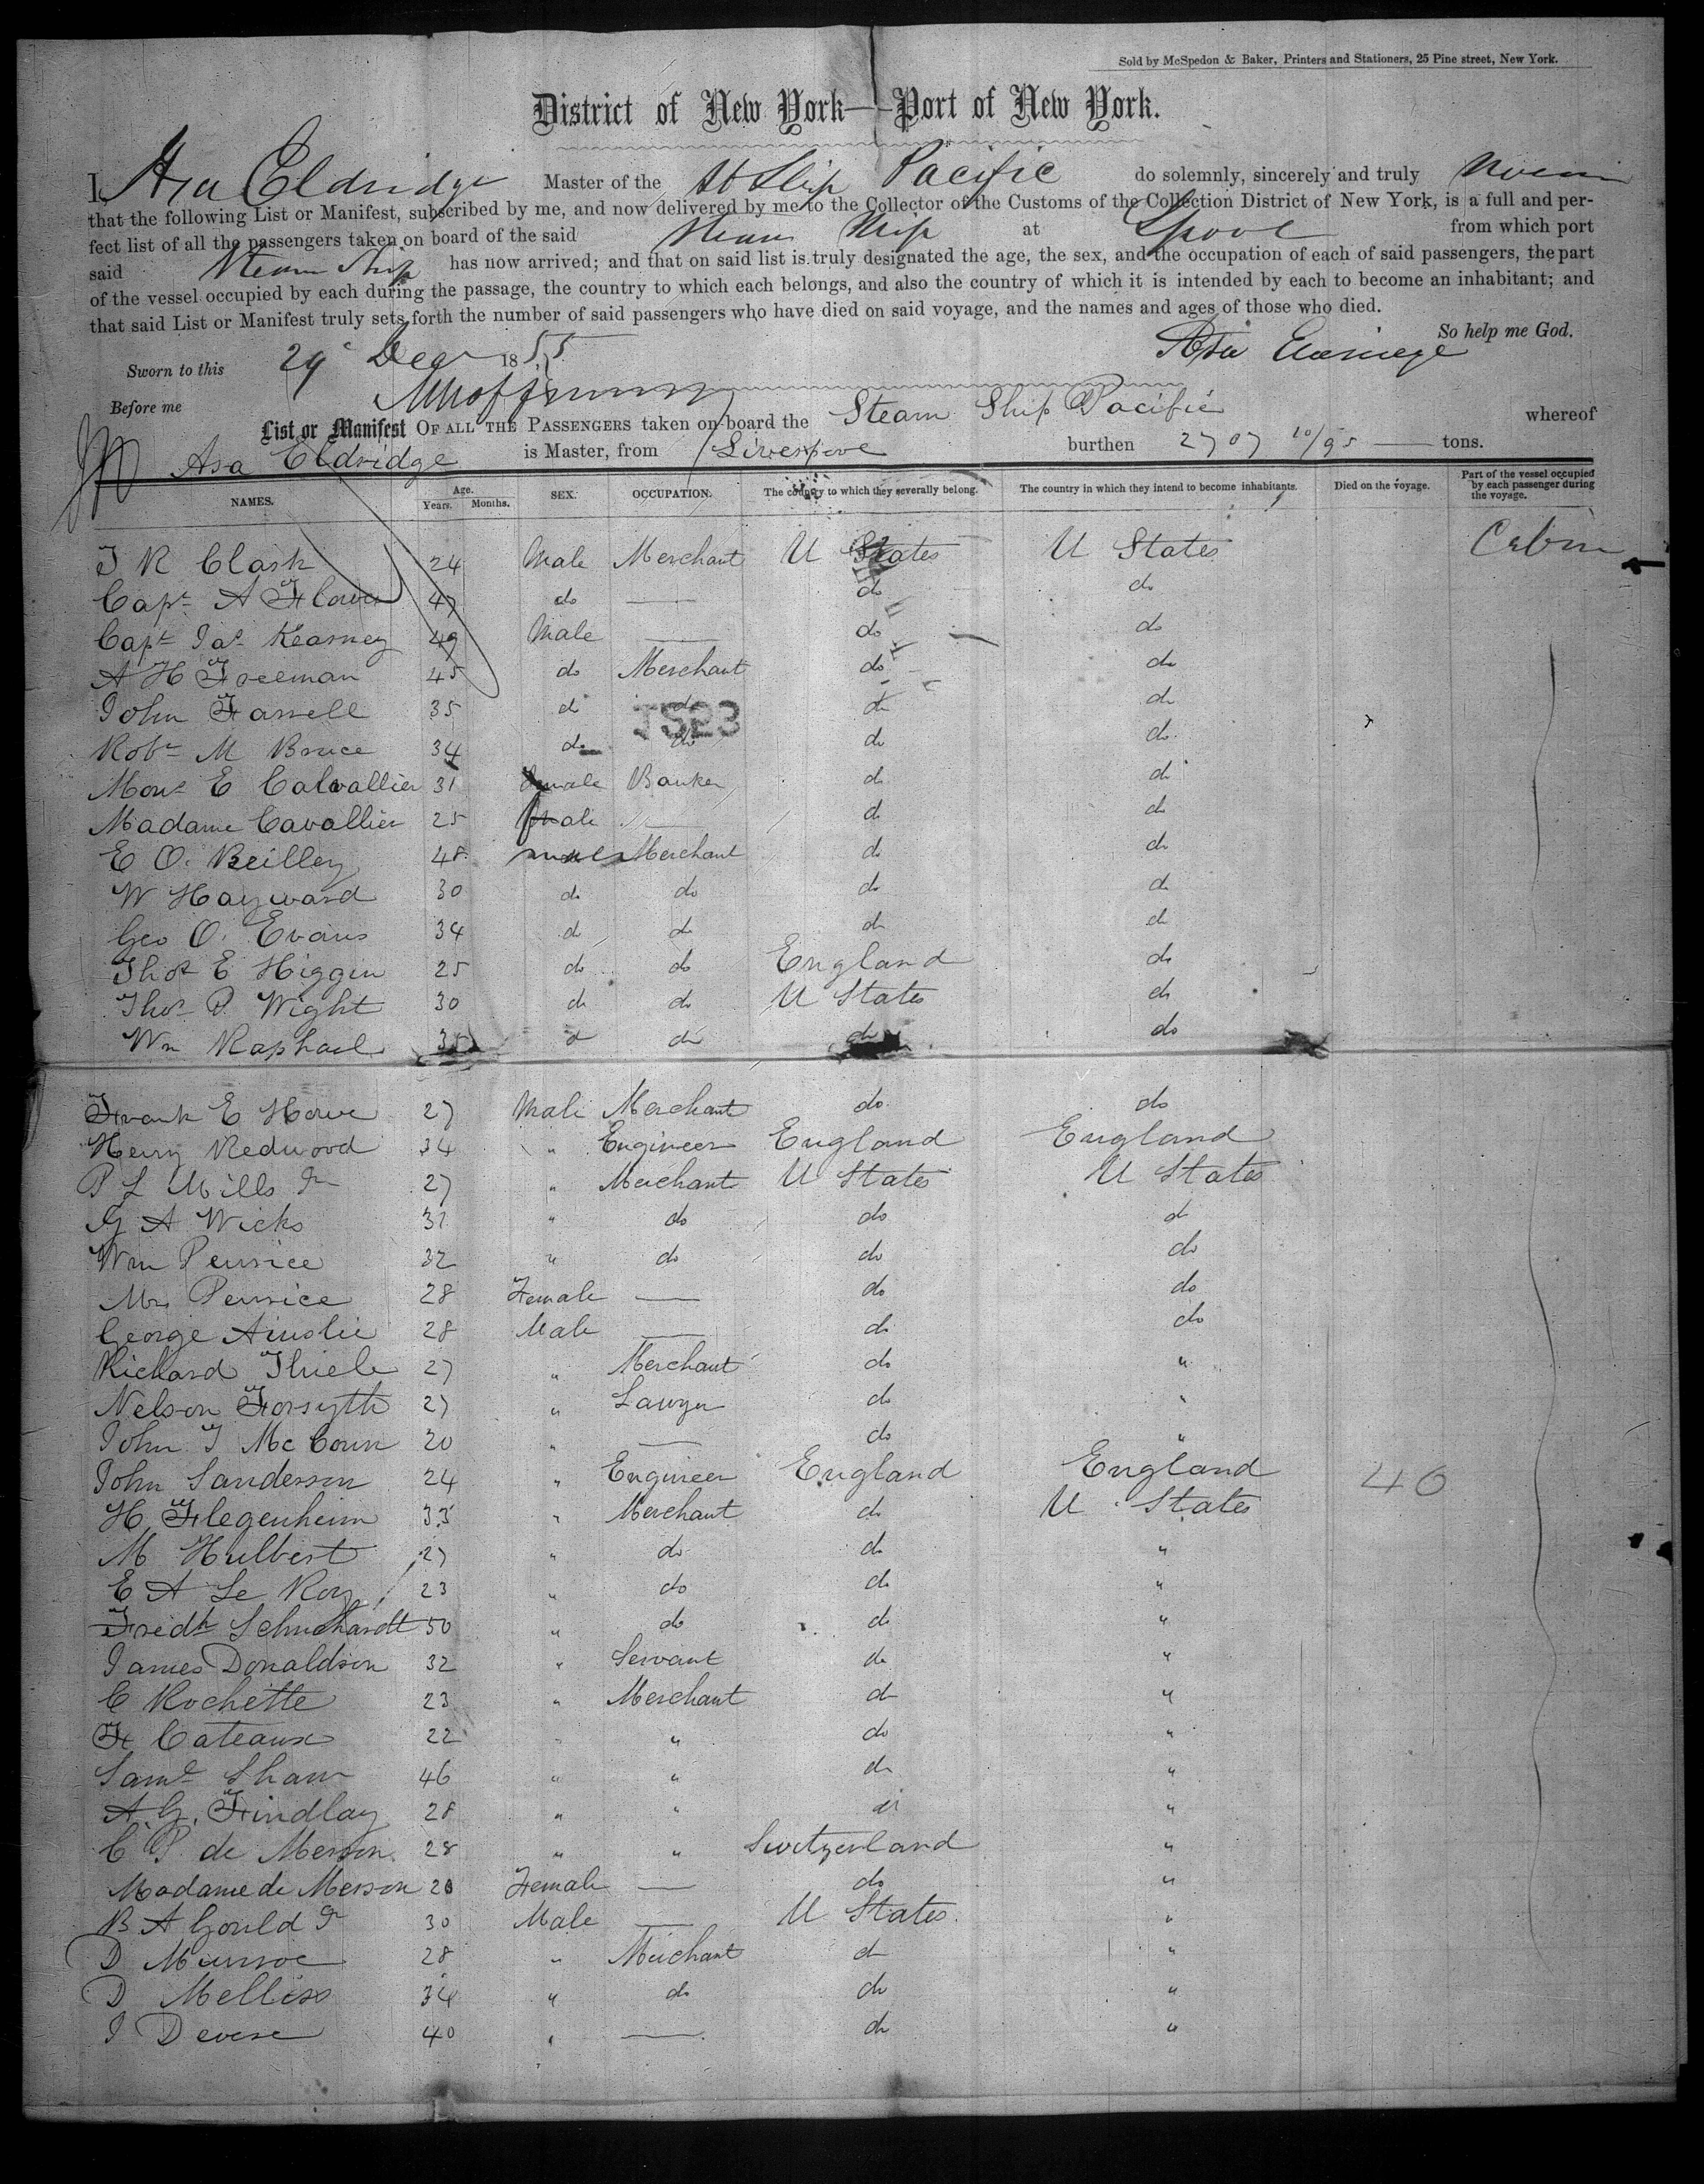 Sold by McSpedon & Baker, Printers and Stationers, 25 Pine street, New York.
District of New York—Port of New York.
I, Asa Eldridge Master of the St Ship Pacific do solemnly, sincerely and truly
that the following List or Manifest, subscribed by me, and now delivered by me to the Collector of the Customs of the Collection District of New York, is a full and per-
fect list of all the passengers taken on board of the said Steam Ship at Lpool from which port
said Steam Ship has now arrived; and that on said list is truly designated the age, the sex, and the occupation of each of said passengers, the part
of the vessel occupied by each during the passage, the country to which each belongs, and also the country of which it is intended by each to become an inhabitant; and
that said List or Manifest truly sets forth the number of said passengers who have died on said voyage, and the names and ages of those who died.
So help me God.
Sworn to this 29 Dec 1855 Asa Eldridge
Before me
List or Manifest OF ALL THE PASSENGERS taken on board the Steam Ship Pacific whereof
Asa Eldridge is Master, from Liverpool burthen 2707 20/95 — tons.
NAMES. Age. Years. Months. SEX. OCCUPATION. The country to which they severally belong. The country in which they intend to become inhabitants. Died on the voyage. Part of the vessel occupied by each passenger during the voyage.
J R Clark 24 Male Merchant U States U States Cabin
Capt A 47 do — do do
Capt Jas Kearney 49 Male — do do
A H Freeman 45 do Merchant do do
John Farrell 35 do do do do
1523
Robt M Bruce 34 do do do do
Mons E Cavallier 31 male Banker do do
Madame Cavallier 25 — do do
E O. Reilley 48 male Merchant do do
W Hayward 30 do do do do
Geo O. Evans 34 do do do do
Thos E Higgin 25 do do England do
Thos P. Wight 30 do do U States do
Wm Raphael 35 do do do do
Frank E Howe 27 Male Merchant do do
Henry Redwood 34 " Engineer England England
P L Mills Jr 27 " Merchant U States U States
G A Wicks 31 " do do do
Wm Penrice 32 " do do do
Mrs Penrice 28 Female — do do
George Ainslie 28 Male — do do
Richard Thiele 27 " Merchant do "
Nelson Forsyth 27 " Lawyer do "
John T McCoun 20 " — do "
John Sanderson 24 " Engineer England England 40
H. Flegenheim 33 " Merchant do U States
M Hulbert 27 " do do "
E A Le Roy 23 " do do "
Fredk Schuchardt 50 " do do "
James Donaldson 32 " Servant do "
C Rochette 23 " Merchant do "
F Cateaux 22 " " do "
Saml Shaw 46 " " do "
A. G. Findlay 28 " " do "
C P. de Merson 28 " " Switzerland "
Madame de Merson 20 Female — do "
B A Gould Jr 30 Male — U States "
D Munroe 28 " Merchant do "
D Melliss 34 " do do "
J Devese 40 " — do "